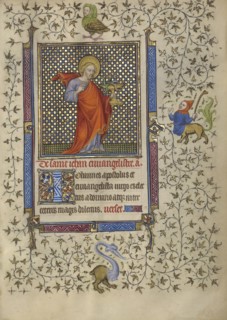 De saint iehan euuangeliste. a.
Iohannes apostolus et
euuangelista uirgo est elec
tus a domino atqz inter
ceteros magis dilectus. verset